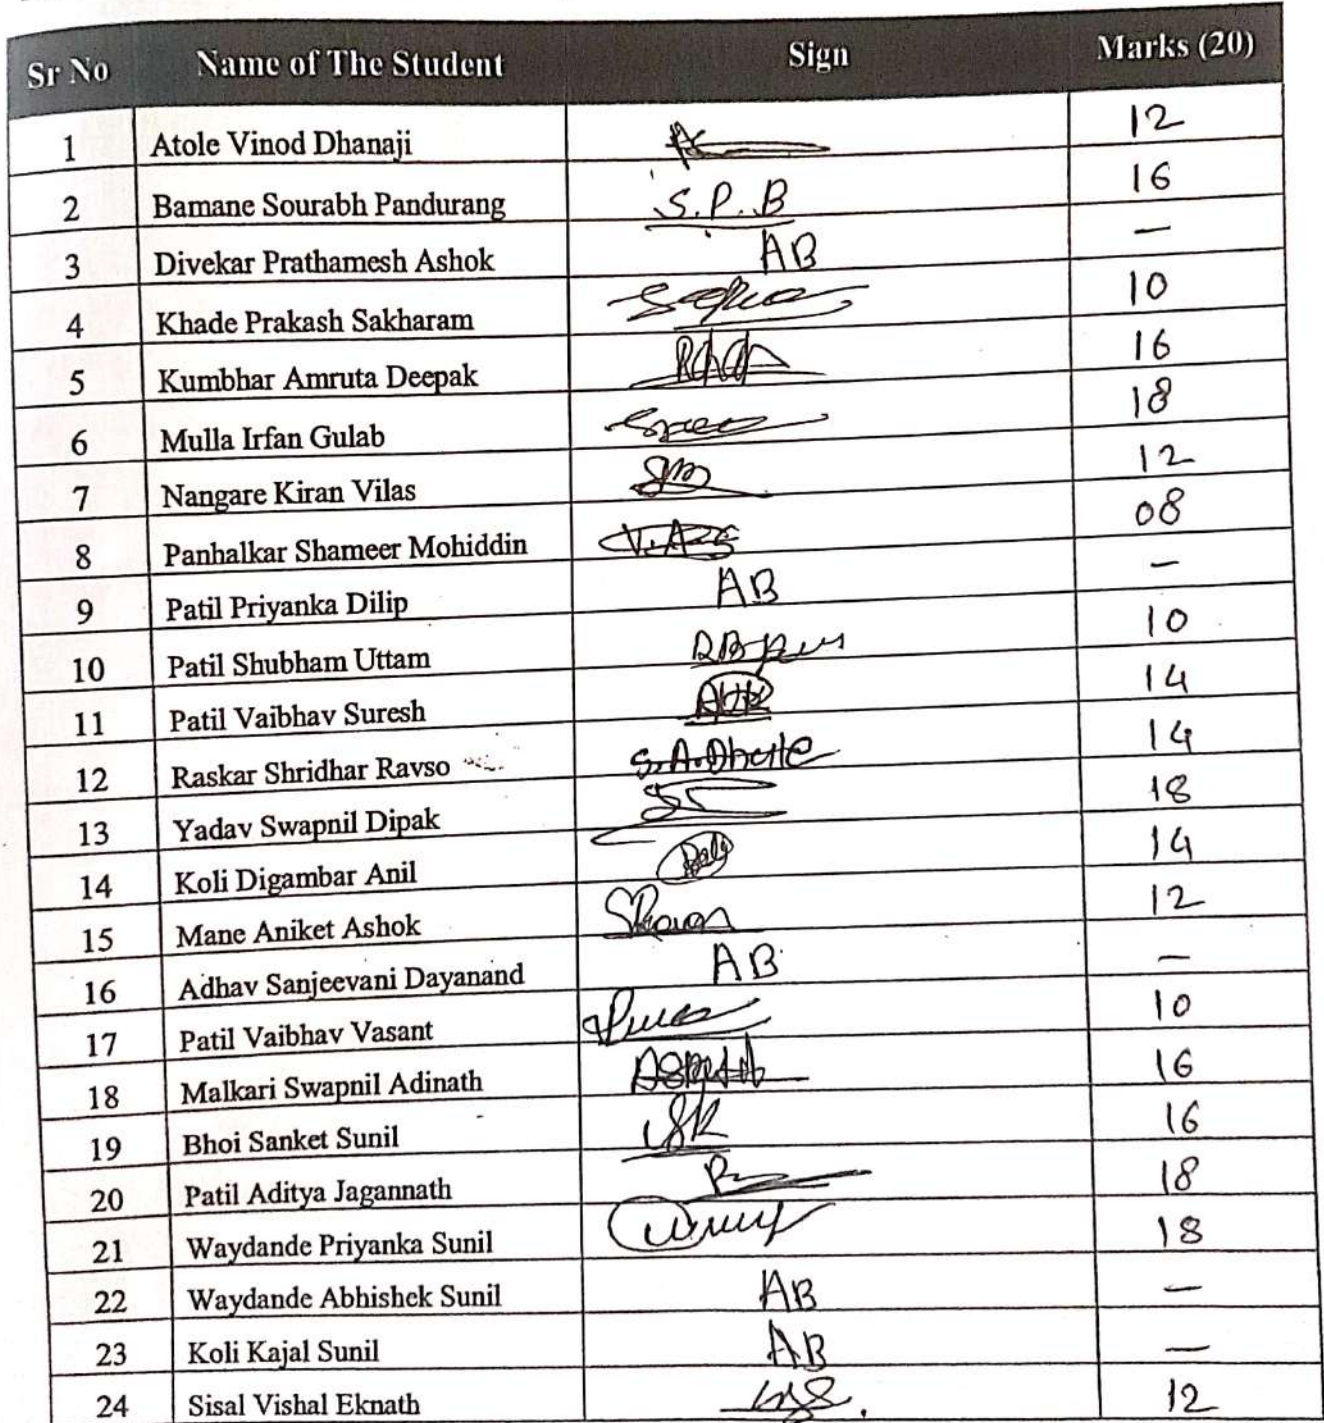 Sr No Name of The Student Sign Marks (20)
1 Atole Vinod Dhanaji 12
2 Bamane Sourabh Pandurang S.P.B 16
3 Divekar Prathamesh Ashok AB —
4 Khade Prakash Sakharam 10
5 Kumbhar Amruta Deepak 16
6 Mulla Irfan Gulab 18
7 Nangare Kiran Vilas 12
8 Panhalkar Shameer Mohiddin 08
9 Patil Priyanka Dilip AB —
10 Patil Shubham Uttam 10
11 Patil Vaibhav Suresh 14
12 Raskar Shridhar Ravso 14
13 Yadav Swapnil Dipak 18
14 Koli Digambar Anil 14
15 Mane Aniket Ashok 12
16 Adhav Sanjeevani Dayanand AB —
17 Patil Vaibhav Vasant 10
18 Malkari Swapnil Adinath 16
19 Bhoi Sanket Sunil 16
20 Patil Aditya Jagannath 18
21 Waydande Priyanka Sunil 18
22 Waydande Abhishek Sunil AB —
23 Koli Kajal Sunil AB —
24 Sisal Vishal Eknath 12